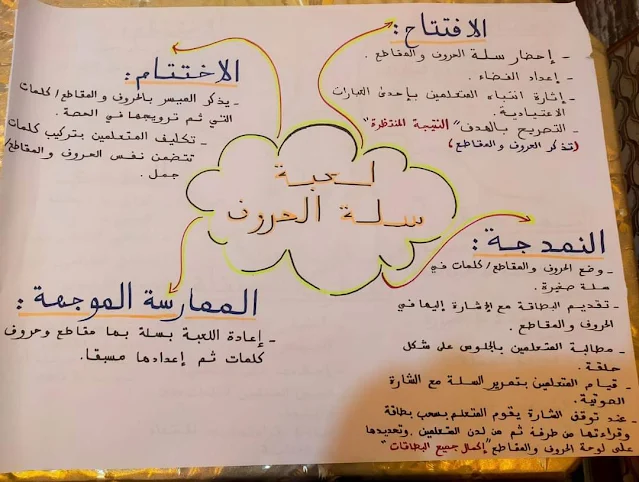 لعبة
سلة الحروف
الافتتاح:
- إحضار سلة الحروف والمقاطع.
- إعداد الفضاء.
- إثارة انتباه المتعلمين بإحدى العبارات
الاعتيادية.
- التصريح بالهدف "النتيجة المنتظرة"
(تذكر الحروف والمقاطع)
النمذجة:
- وضع الحروف والمقاطع/كلمات في
سلة صغيرة.
- تقديم البطاقة مع الإشارة إليها في
الحروف والمقاطع.
- مطالبة المتعلمين بالجلوس على شكل
حلقة.
- قيام المتعلمين بتمرير السلة مع الشارة
الصوتية.
- عند توقف الشارة يقوم المتعلم بسحب بطاقة
وقراءتها من طرفه ثم من لدن المتعلمين، وتحديدها
على لوحة الحروف والمقاطع "إكمال جميع البطاقات"
الممارسة الموجهة:
- إعادة اللعبة بسلة بها مقاطع وحروف
كلمات تم إعدادها مسبقا.
الاختتام:
- يذكر الميسر بالحروف والمقاطع/كلمات
التي تم ترويجها في الحصة.
- تكليف المتعلمين بتركيب كلمات
تتضمن نفس الحروف والمقاطع/
جمل.